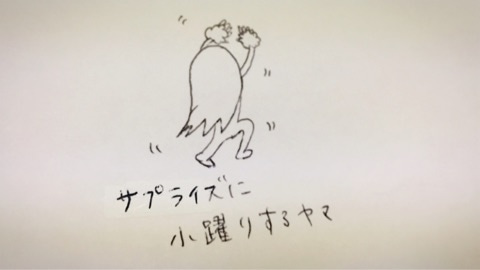 サプライズに
小躍りするヤマ